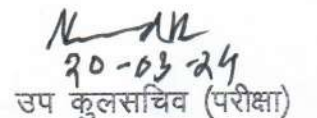 20-03-24
उप कुलसचिव (परीक्षा)